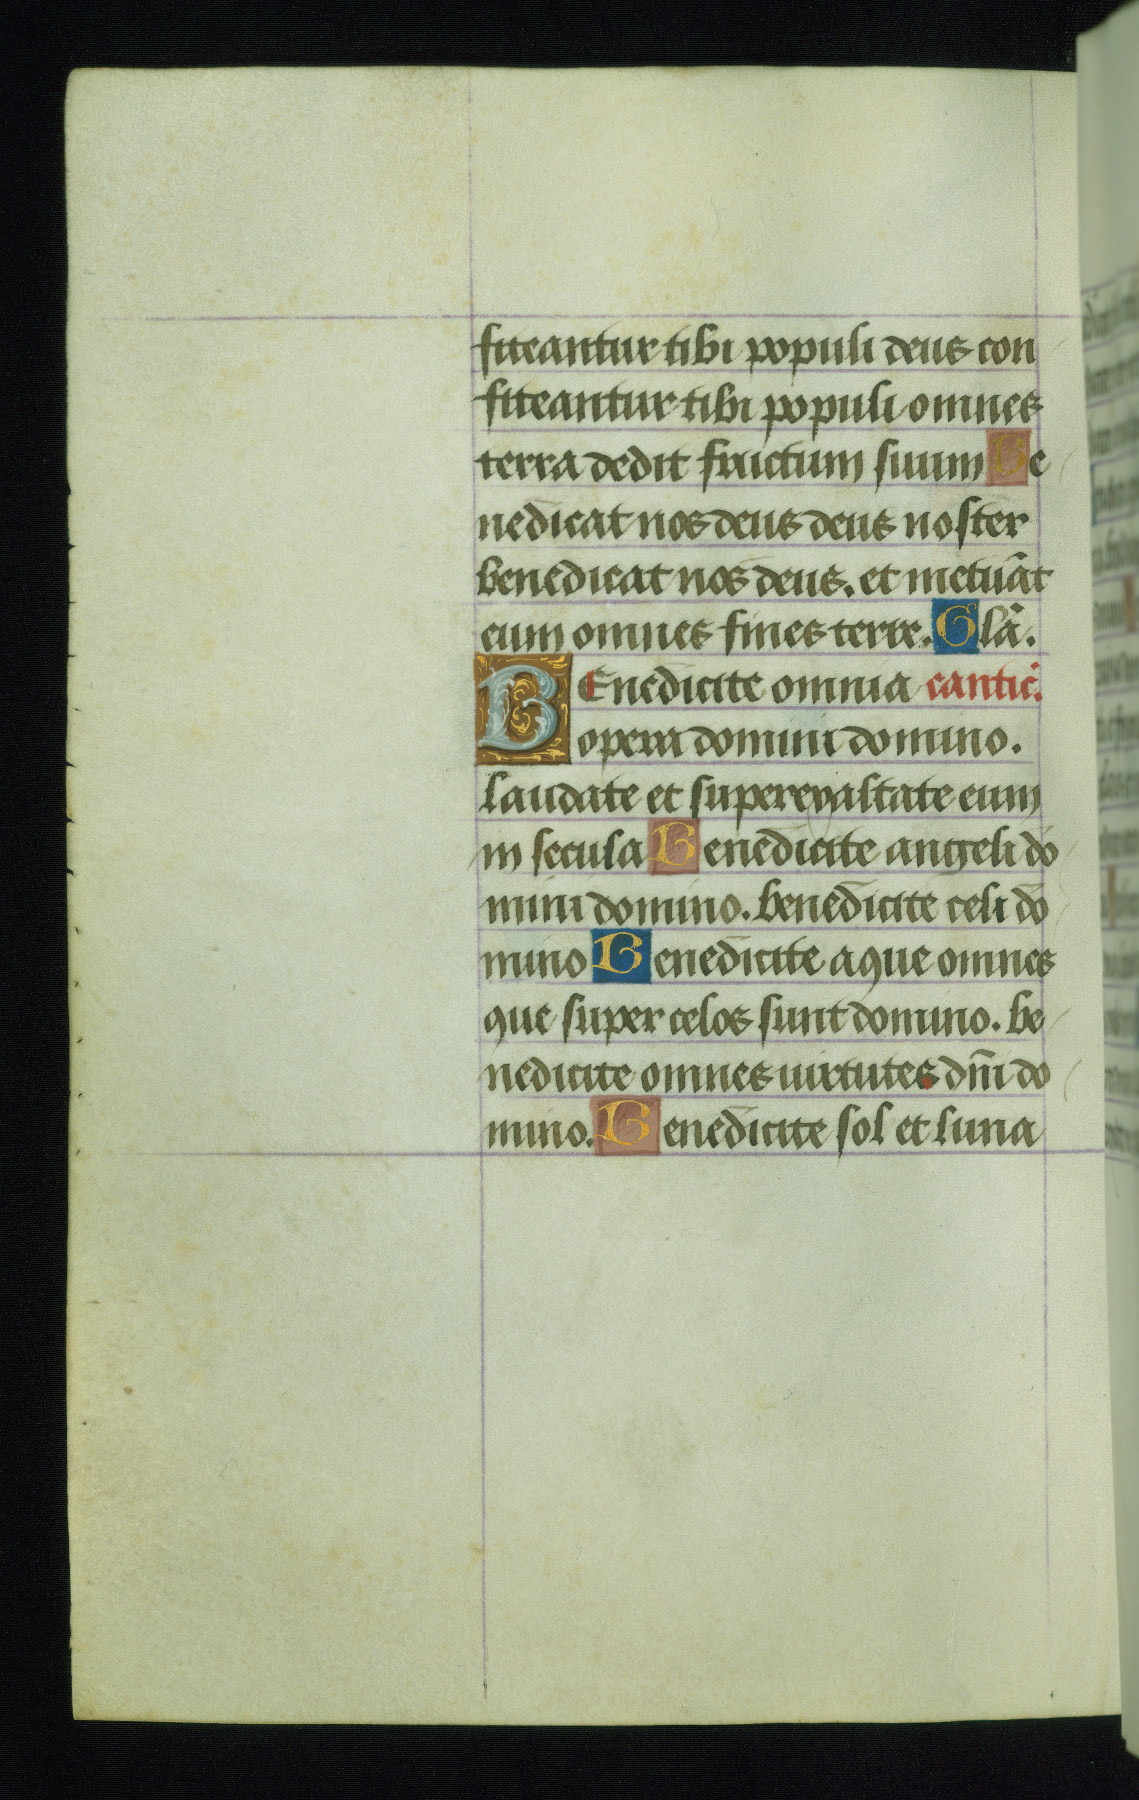 fiteantur tibi populi deus con
fiteantur tibi populi omnes
terra dedit fructum suum Be
nedicat nos deus deus noster
benedicat nos deus. et metuãt
eum omnes fines terre. Glã.
BEnedicite omnia cantic̃.
opera domini domino.
laudate et superexaltate eum
in secula Benedicite angeli do
mini domino. benedicite celi do
mino Benedicite aque omnes
que super celos sunt domino. be
nedicite omnes uirtutes dñi do
mino. Benedicite sol et luna